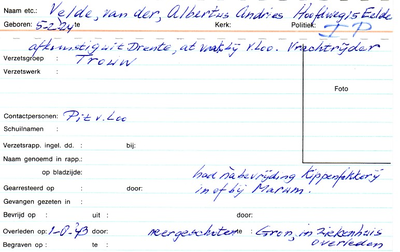 Naam etc.: Velde, van der, Albertus Andries Hoofdweg 15 Eelde
Geboren: 5-2-24 Kerk: Politiek:
afkomstig uit Drente, at wsk bij v. Loo. Vrachtrijder
Verzetsgroep : Trouw
Verzetswerk :
Foto
Contactpersonen: Pit v. Loo
Schuilnamen :
Verzetsrapp. ingel. dd. : bij:
Naam genoemd in rapp.:
op bladzijde: had na bevrijding kippenfokkerij
Gearresteerd op : door: in of bij Marum.
Gevangen gezeten in :
Bevrijd op : uit : door:
Overleden op: door: neergeschoten te : Gron, in ziekenhuis
overleden
Begraven op : te :